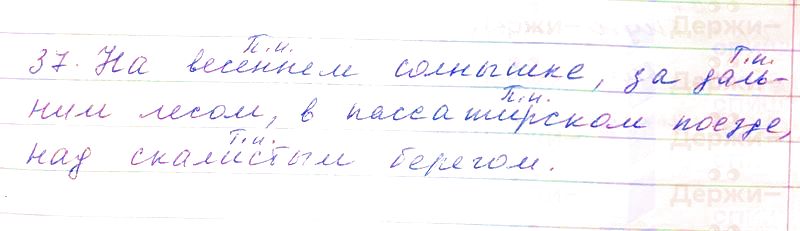 П.п. Т.п.
37. На весеннем солнышке, за даль-
П.п.
ним лесом, в пассажирском поезде,
Т.п.
над скалистым берегом.
Держи-
Держи-
Держи-
Держи-